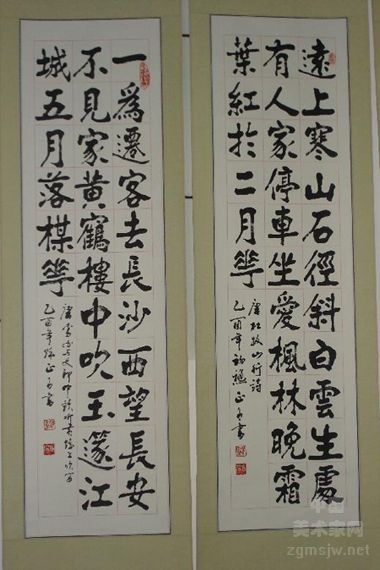 遠上寒山石徑斜白雲生處
有人家停車坐愛楓林晚霜
葉紅於二月華
唐杜牧山行詩
乙酉年 書
一爲遷客去長沙西望長安
不見家黃鶴樓中吹玉篴江
城五月落楳華
乙酉年 書
中国
美术家网
zgmsjw.net